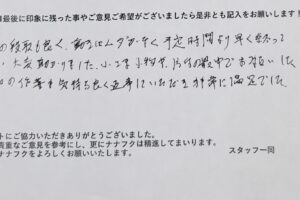 最後に印象に残った事やご意見ご希望がございましたら是非とも記入をお願いします!
の段取も良く、動きにムダがなく予定時間より早く終って
大変助かりました。小さな小物や
の作業も気持ち良く返事していただき非常に満足でした。
トにご協力いただきありがとうございました。
貴重なご意見を参考にし、更にナナフクは精進してまいります。
ナナフクをよろしくお願いいたします。
スタッフ一同